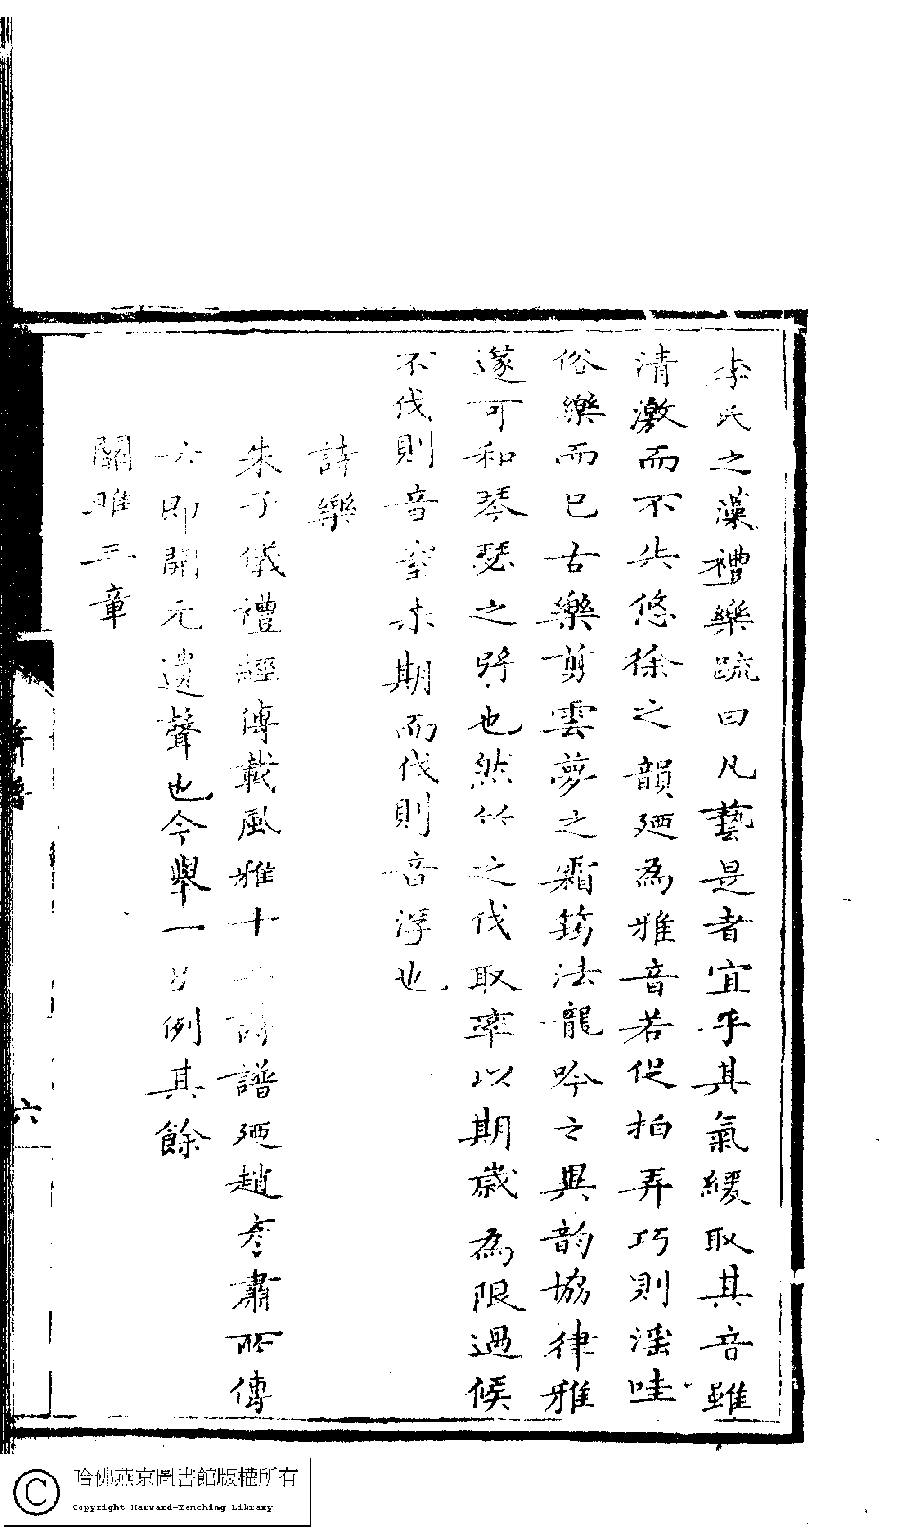 李氏之藻禮樂疏曰凡藝是者宜乎其氣緩取其音雖
清激而不失悠徐之韻廼為雅音若促拍弄巧則滛哇
俗樂而已古樂剪雲夢之霜筠法龍吟之異韵協律雅
遂可和琴瑟之將也然竹之伐取率以期歲為限過候
不伐則音窒未期而伐則音浮也
詩樂
朱子儀禮經傳載風雅十二詩譜廼趙彥肅所傳
云即開元遺聲也今舉一以例其餘
關雎三章
六
哈佛燕京圖書館版權所有
Copyright Harvard-Yenching Library